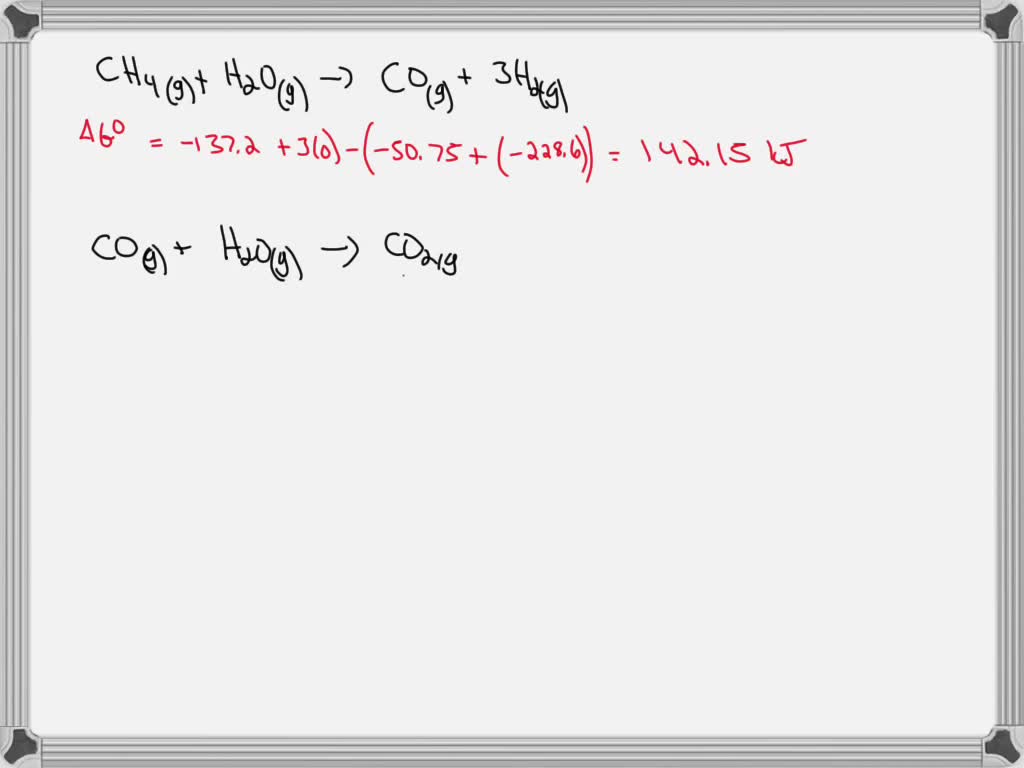 CH4(g) + H2O(g) → CO(g) + 3H2(g)
ΔG° = -137.2 + 3(0) - (-50.75 + (-228.6)) = 142.15 kJ
CO(g) + H2O(g) → CO2(g